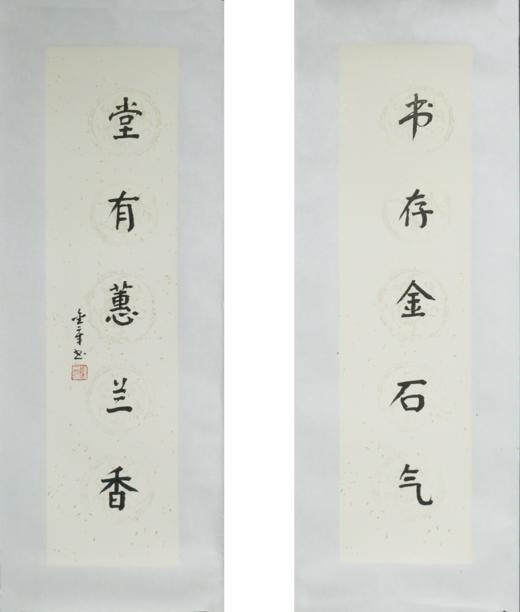 书存金石气
堂有蕙兰香